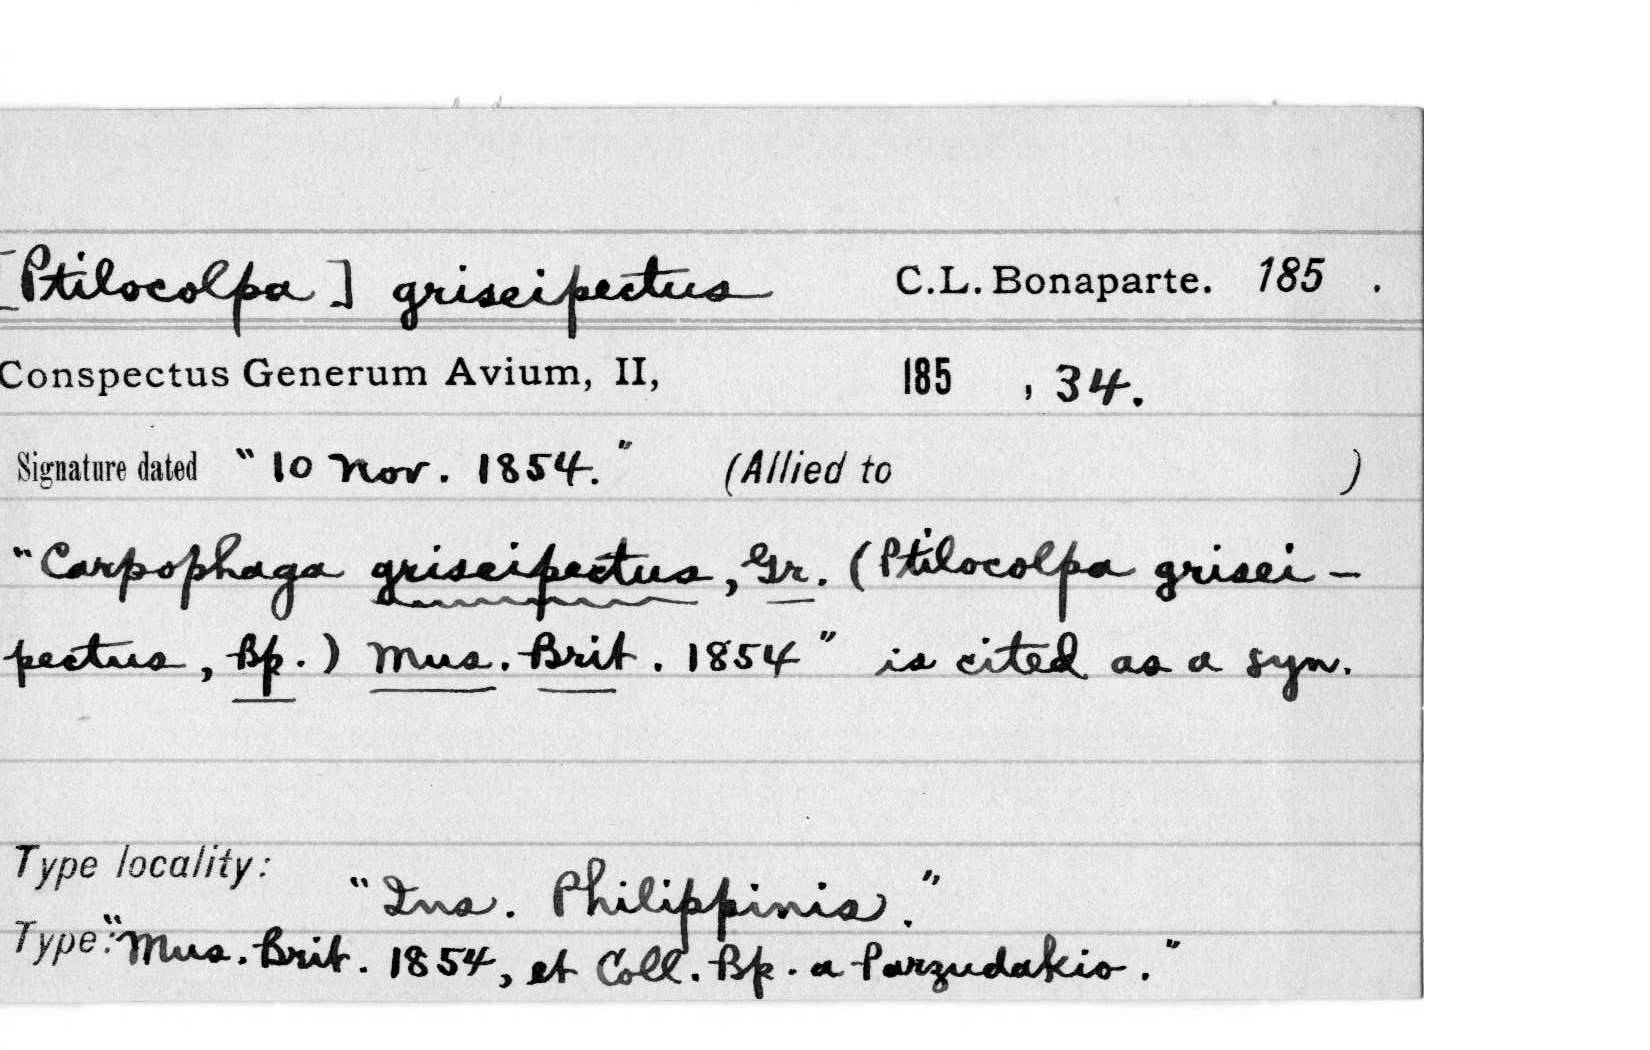 [Ptilocolpa] griseipectus C.L. Bonaparte. 185 .
Conspectus Generum Avium, II, 185 , 34.
Signature dated "10 Nov. 1854." (Allied to )
"Carpophaga griseipectus, Gr. (Ptilocolpa grisei-
pectus, Bp.) Mus. Brit. 1854" is cited as a syn.
Type locality:
"Ins. Philippinis."
Type: "Mus. Brit. 1854, et Coll. Bp. a Parzudakio."